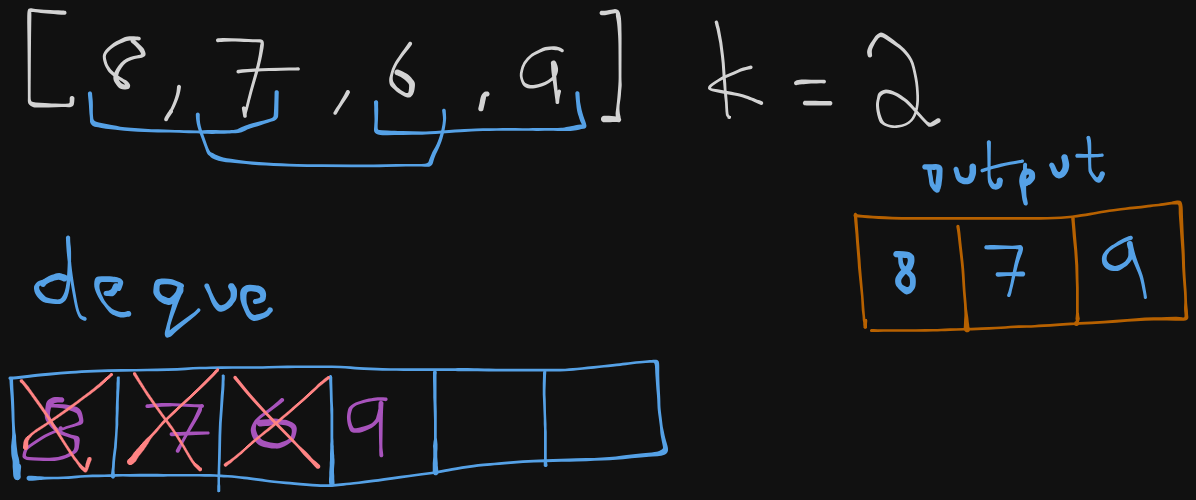 [8, 7, 6, 9] k = 2
output
8 7 9
deque
8 7 6 9